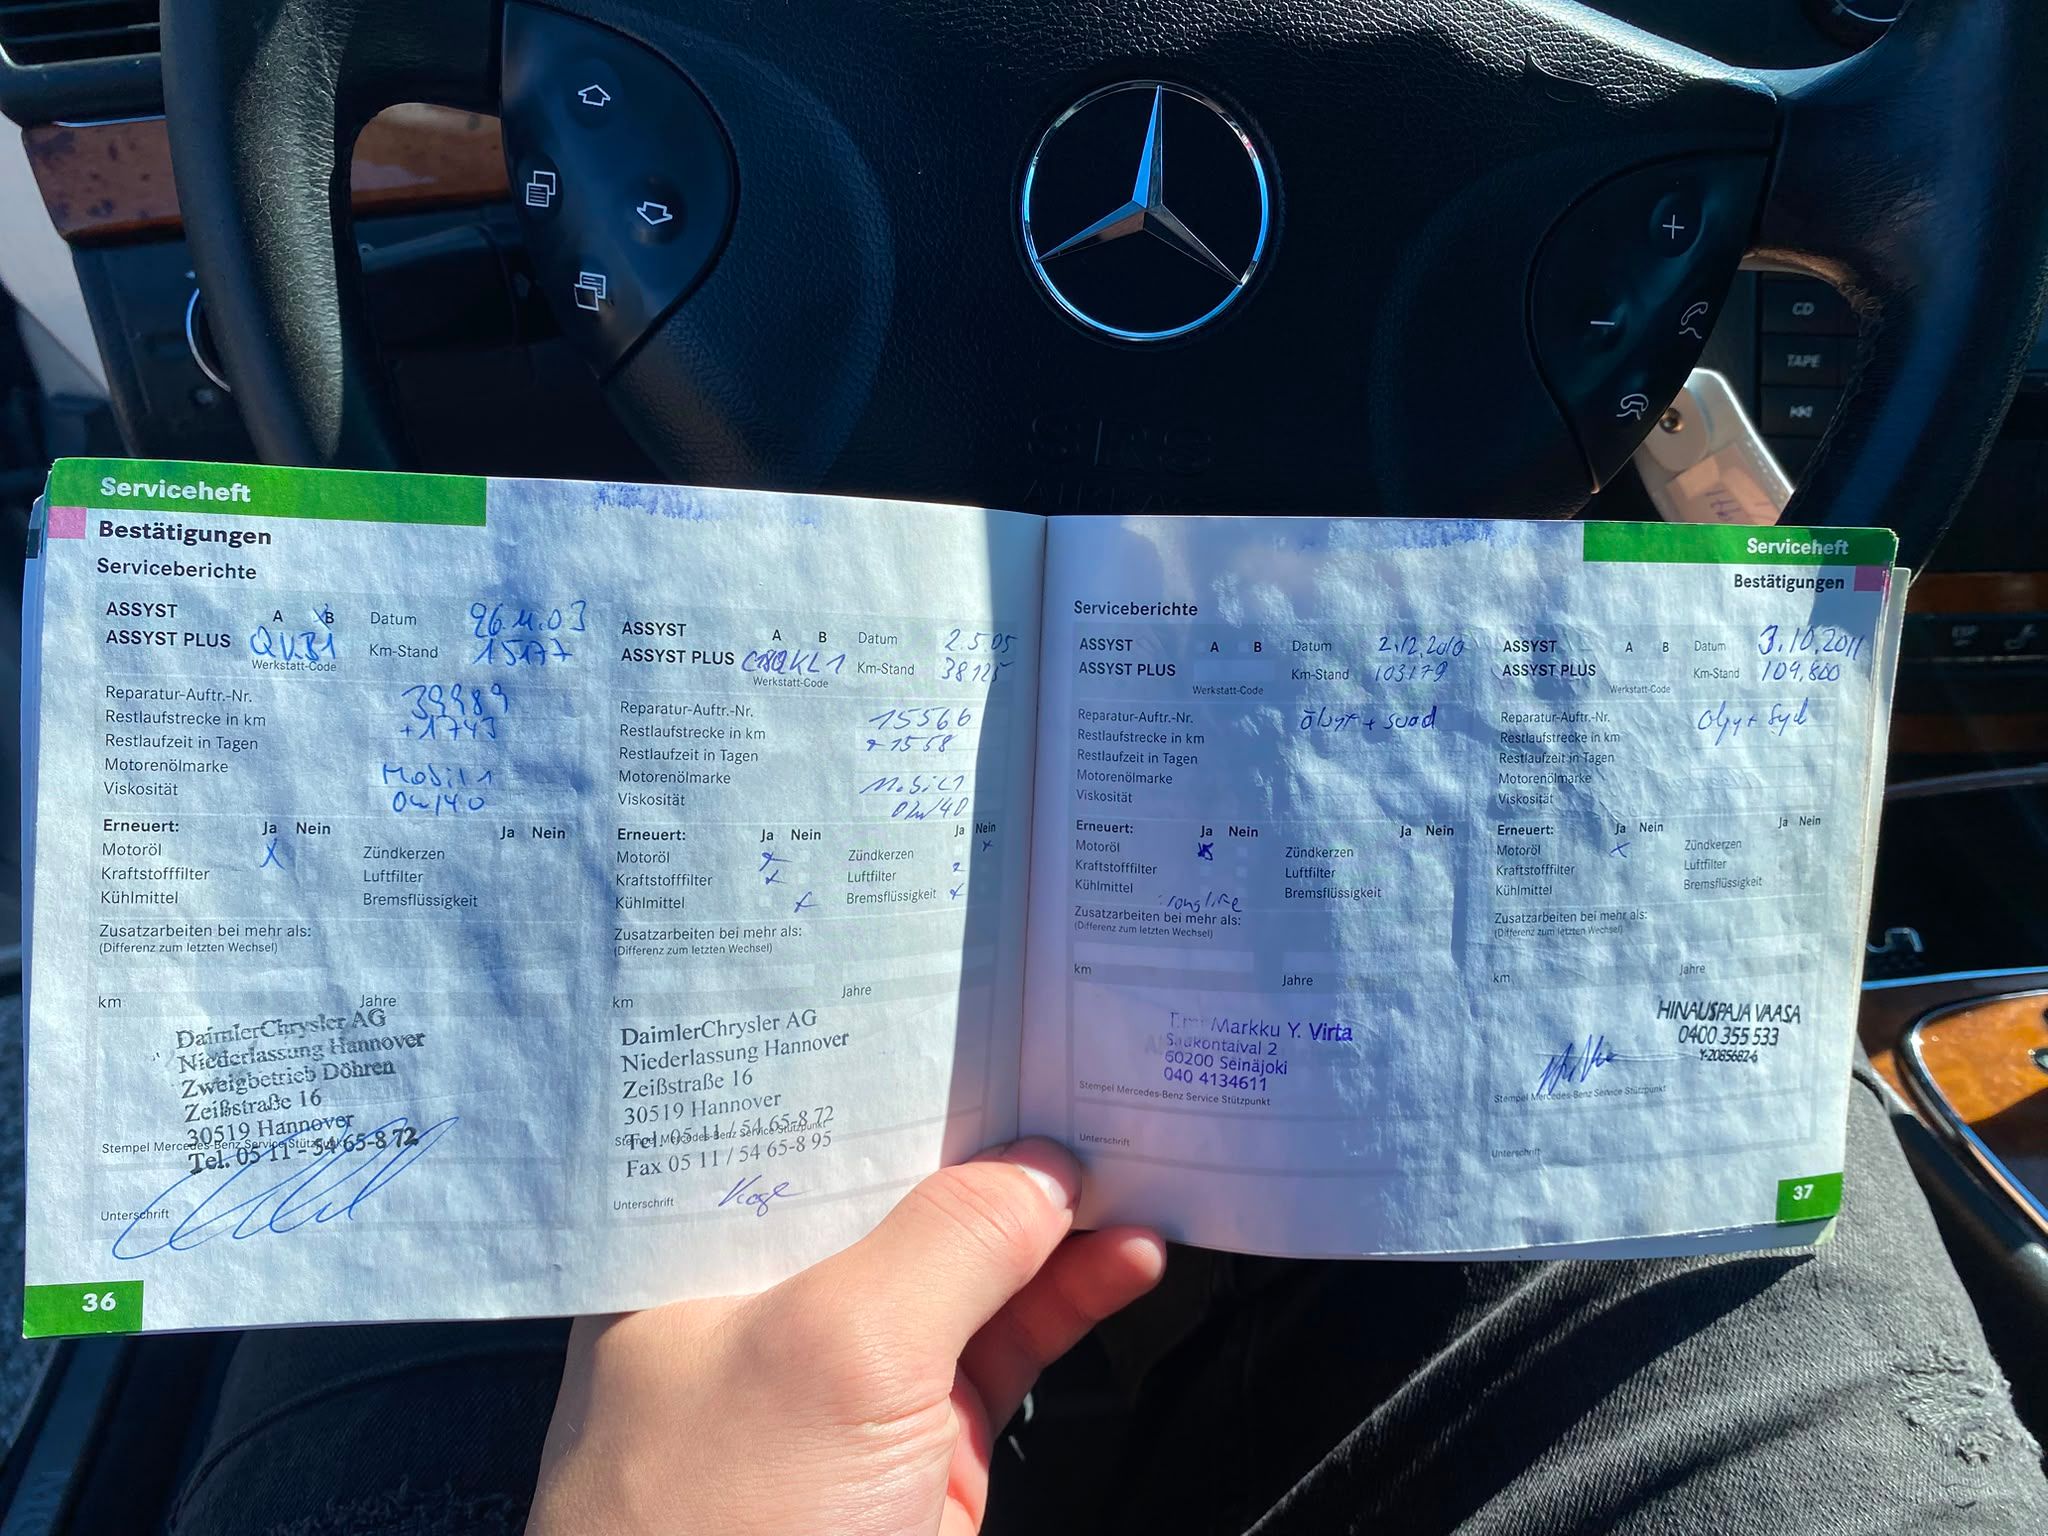 CD
TAPE
SRS
AIRBAG
Serviceheft
Bestätigungen
Serviceberichte
ASSYST A B Datum 26.11.03
ASSYST PLUS QV.B1 Km-Stand 15177
Werkstatt-Code
Reparatur-Auftr.-Nr. 39989
Restlaufstrecke in km +1743
Restlaufzeit in Tagen
Motorenölmarke Mobil 1
Viskosität 0w/40
Erneuert: Ja Nein Ja Nein
Motoröl X Zündkerzen
Kraftstofffilter Luftfilter
Kühlmittel Bremsflüssigkeit
Zusatzarbeiten bei mehr als:
(Differenz zum letzten Wechsel)
km Jahre
DaimlerChrysler AG
Niederlassung Hannover
Zweigbetrieb Döhren
Zeißstraße 16
30519 Hannover
Stempel Mercedes-Benz Service Stützpunkt
Tel. 05 11 - 54 65-8 72
Unterschrift
36
ASSYST A B Datum 2.5.05
ASSYST PLUS Km-Stand 38125
Werkstatt-Code
Reparatur-Auftr.-Nr. 15566
Restlaufstrecke in km +1558
Restlaufzeit in Tagen
Motorenölmarke Mobil 1
Viskosität 0w/40
Erneuert: Ja Nein Ja Nein
Motoröl x Zündkerzen x
Kraftstofffilter x Luftfilter
Kühlmittel x Bremsflüssigkeit x
Zusatzarbeiten bei mehr als:
(Differenz zum letzten Wechsel)
km Jahre
DaimlerChrysler AG
Niederlassung Hannover
Zeißstraße 16
30519 Hannover
Tel. 05 11 / 54 65-8 72
Stempel Mercedes-Benz Service Stützpunkt
Fax 05 11 / 54 65-8 95
Unterschrift
Serviceheft
Bestätigungen
Serviceberichte
ASSYST A B Datum 2.12.2010
ASSYST PLUS Km-Stand 103179
Werkstatt-Code
Reparatur-Auftr.-Nr.
Restlaufstrecke in km
Restlaufzeit in Tagen
Motorenölmarke
Viskosität
Erneuert: Ja Nein Ja Nein
Motoröl x Zündkerzen
Kraftstofffilter Luftfilter
Kühlmittel Bremsflüssigkeit
longlife
Zusatzarbeiten bei mehr als:
(Differenz zum letzten Wechsel)
km Jahre
Markku Y. Virta
60200 Seinäjoki
040 4134611
Stempel Mercedes-Benz Service Stützpunkt
Unterschrift
ASSYST A B Datum 3.10.2011
ASSYST PLUS Km-Stand 109,800
Werkstatt-Code
Reparatur-Auftr.-Nr.
Restlaufstrecke in km
Restlaufzeit in Tagen
Motorenölmarke
Viskosität
Erneuert: Ja Nein Ja Nein
Motoröl x Zündkerzen
Kraftstofffilter Luftfilter
Kühlmittel Bremsflüssigkeit
Zusatzarbeiten bei mehr als:
(Differenz zum letzten Wechsel)
km Jahre
HINAUSPAJA VAASA
0400 355 533
Y-2085682-6
Stempel Mercedes-Benz Service Stützpunkt
Unterschrift
37